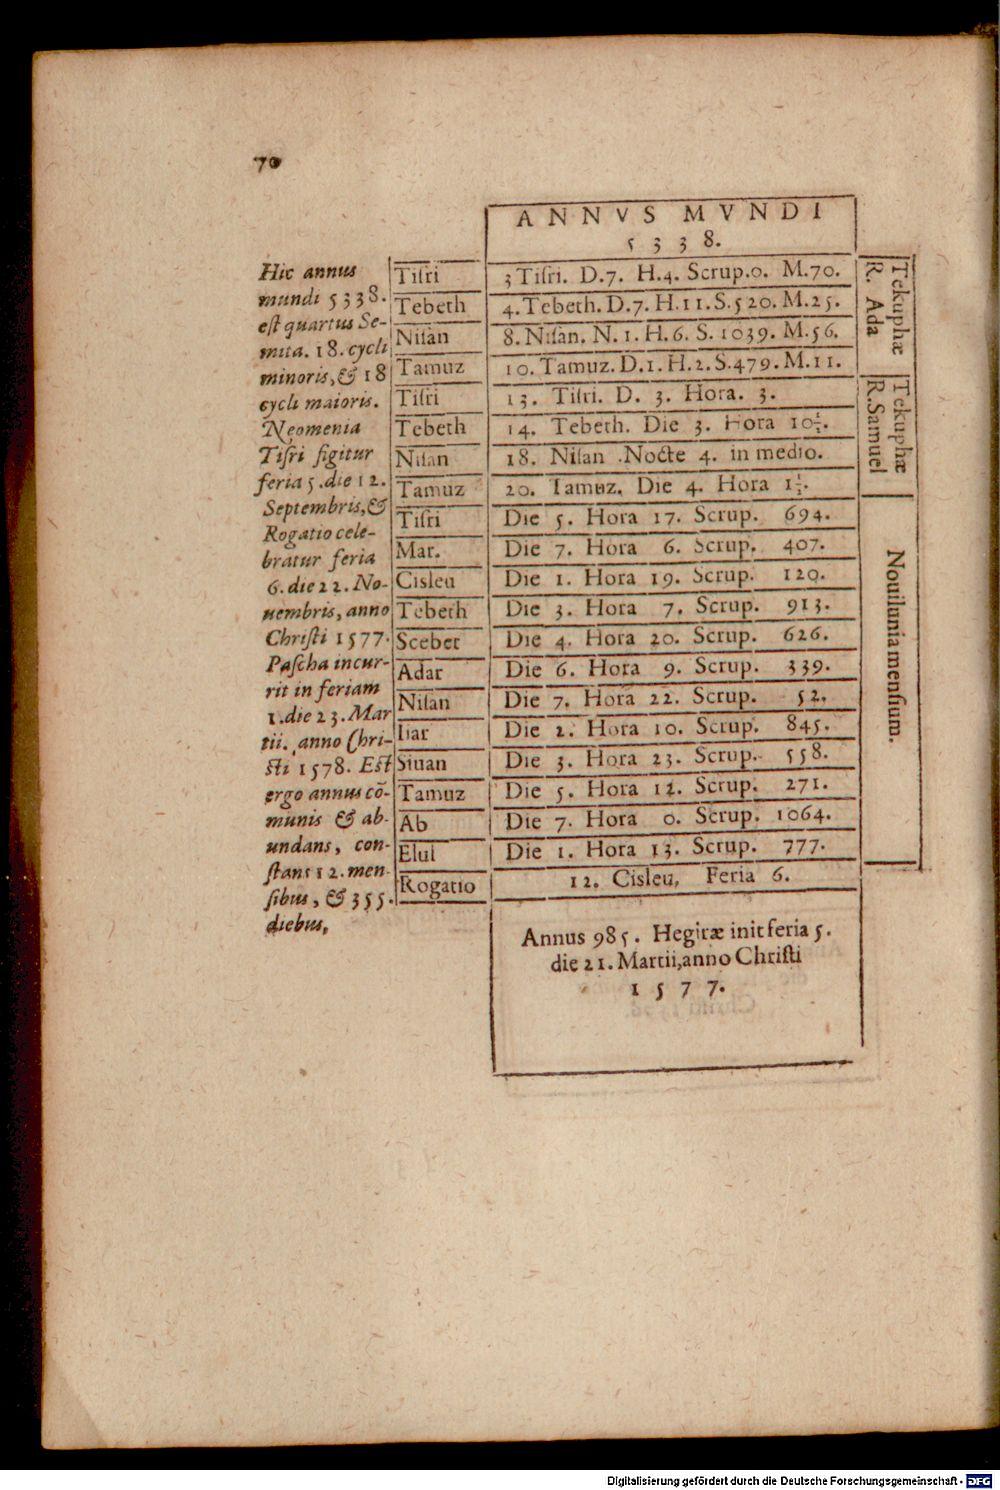 70
ANNVS MVNDI
5338.
Hic annus
mundi 5338.
est quartus Se-
mita. 18. cycli
minoris, & 18
cycli maioris.
Neomenia
Tiſri figitur
feria 5. die 12.
Septembris, &
Rogatio cele-
bratur feria
6. die 22. No-
uembris, anno
Chriſti 1577.
Paſcha incur-
rit in feriam
1. die 23. Mar
tii. anno Chri-
ſti 1578. Eſt
ergo annus cō-
munis & ab-
undans, con-
ſtans 12. men-
ſibus, & 355.
diebus,
Tiſri 3 Tiſri. D.7. H.4. Scrup.0. M.70.
Tebeth 4. Tebeth. D.7. H.11. S.520. M.25.
Niſan 8. Niſan. N. 1. H. 6. S. 1039. M. 56.
Tamuz 10. Tamuz. D.1. H.2. S.479. M.11.
Tiſri 13. Tiſri. D. 3. Hora. 3.
Tebeth 14. Tebeth. Die 3. Hora 10 1/2.
Niſan 18. Niſan .Nocte 4. in medio.
Tamuz 20. Tamuz. Die 4. Hora 1 1/2.
Tiſri Die 5. Hora 17. Scrup. 694.
Mar. Die 7. Hora 6. Scrup. 407.
Cisleu Die 1. Hora 19. Scrup. 120.
Tebeth Die 3. Hora 7. Scrup. 913.
Scebet Die 4. Hora 20. Scrup. 626.
Adar Die 6. Hora 9. Scrup. 339.
Niſan Die 7. Hora 22. Scrup. 52.
Iiar Die 2. Hora 10. Scrup. 845.
Siuan Die 3. Hora 23. Scrup. 558.
Tamuz Die 5. Hora 12. Scrup. 271.
Ab Die 7. Hora 0. Scrup. 1064.
Elul Die 1. Hora 13. Scrup. 777.
Rogatio 12. Cisleu, Feria 6.
Tekuphæ
R. Ada
Tekuphæ
R. Samuel
Nouilunia menſium.
Annus 985. Hegiræ init feria 5.
die 21. Martii, anno Chriſti
1577.
Digitalisierung gefördert durch die Deutsche Forschungsgemeinschaft - DFG